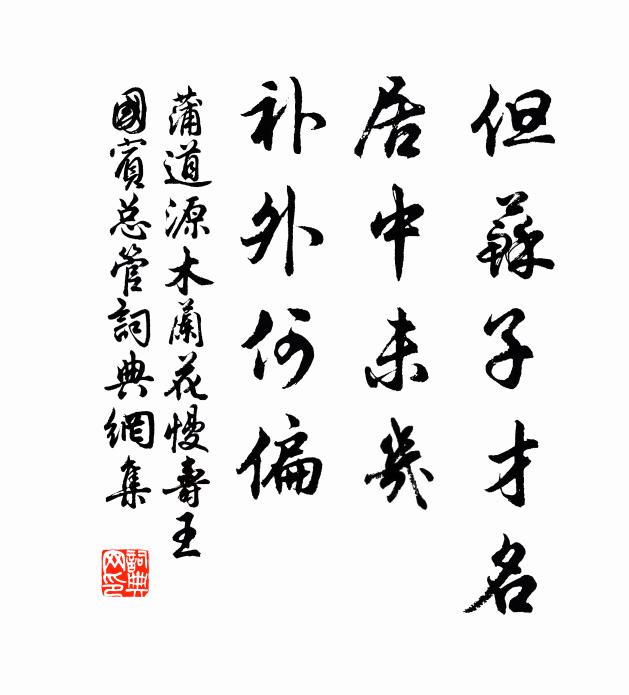 但蘇子才名
居中未幾
补外何偏
蒲道源木蘭花慢壽王
國賓总管詞典網集
詞典网印